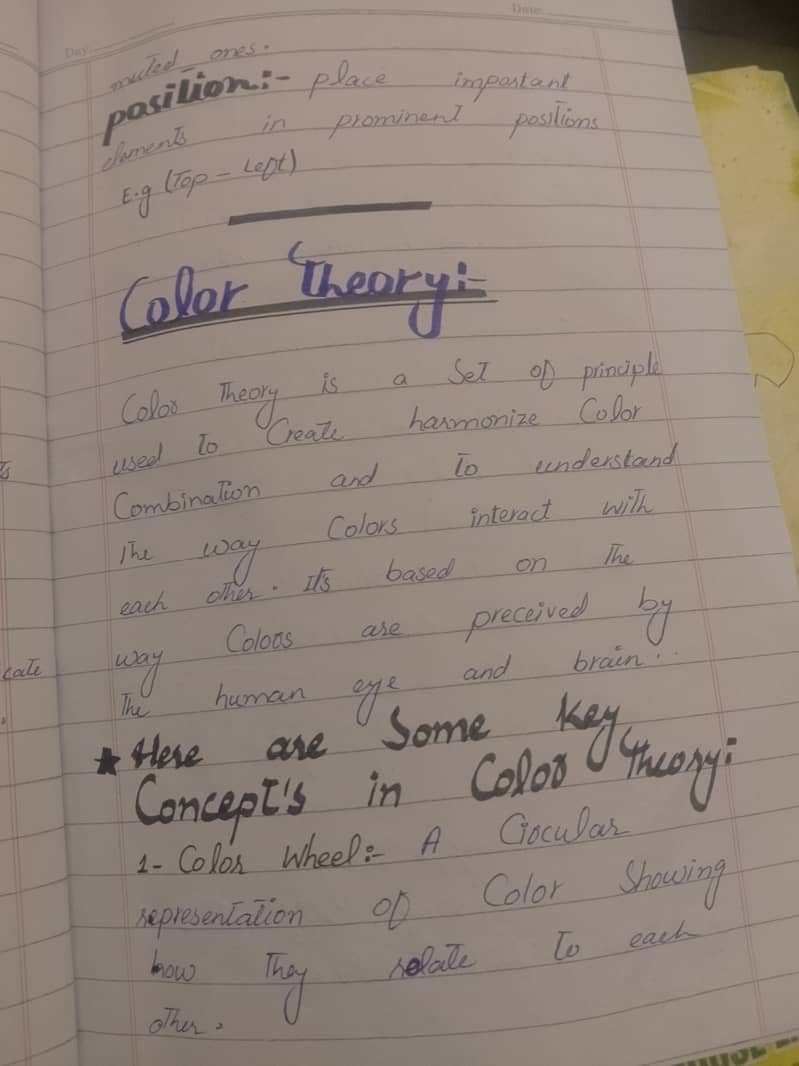 Day:
Date:
muted ones.
position:- place important
elements in prominent positions
E.g (Top - Left)
Color Theory:-
Color Theory is a Set of principle
used To Create harmonize Color
Combination and To understand
The way Colors interact with
each other. It's based on The
way Colors are preceived by
The human eye and brain..
★ Here are Some key
Concept's in Color Theory:
1- Color Wheel:- A Circular
representation of Color Showing
how They relate To each
other.
cate